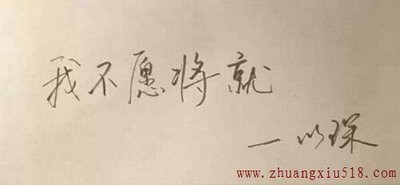 我不愿将就
一以琛
www.zhuangxiu518.com